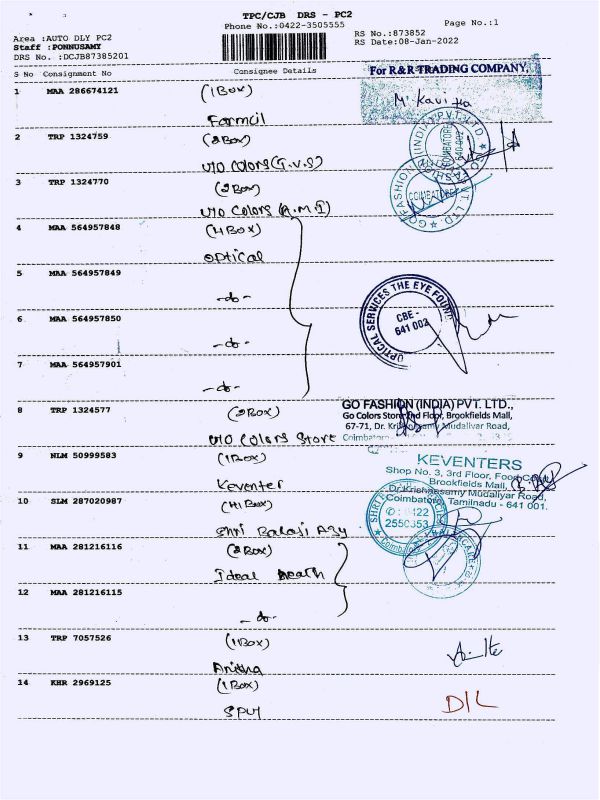 TPC/CJB DRS - PC2
Phone No.:0422-3505555
Page No.:1
Area :AUTO DLY PC2
RS No.:873852
Staff :PONNUSAMY
RS Date:08-Jan-2022
DRS No. :DCJB87385201
S No Consignment No Consignee Details
For R&R TRADING COMPANY,
1 MAA 286674121 (1Box)
Farmcil
2 TRP 1324759 (2Box)
U/O Colors (G.V.S)
3 TRP 1324770 (2Box)
U/O Colors (A.M.I)
4 MAA 564957848 (4Box)
optical
5 MAA 564957849
-do-
6 MAA 564957850
-do-
7 MAA 564957901
-do-
OPTICAL SERVICES THE EYE FOUN
CBE -
641 002
8 TRP 1324577 (2Box)
U/O Colors Store
GO FASHION (INDIA) PVT. LTD.,
Go Colors Store 2nd Floor, Brookfields Mall,
67-71, Dr. Krishnasamy Mudaliyar Road,
9 NLM 50999583 (1Box)
Keventer
KEVENTERS
Shop No. 3, 3rd Floor, Food Court,
Brookfields Mall,
Dr.Krishnasamy Mudaliyar Road,
Coimbatore, Tamilnadu - 641 001.
10 SLM 287020987
Shri Balaji Agy
0422
2550353
11 MAA 281216116 (2Box)
Ideal Health
12 MAA 281216115
-do-
13 TRP 7057526 (1Box)
Anitha
14 KHR 2969125 (1Box)
D/L